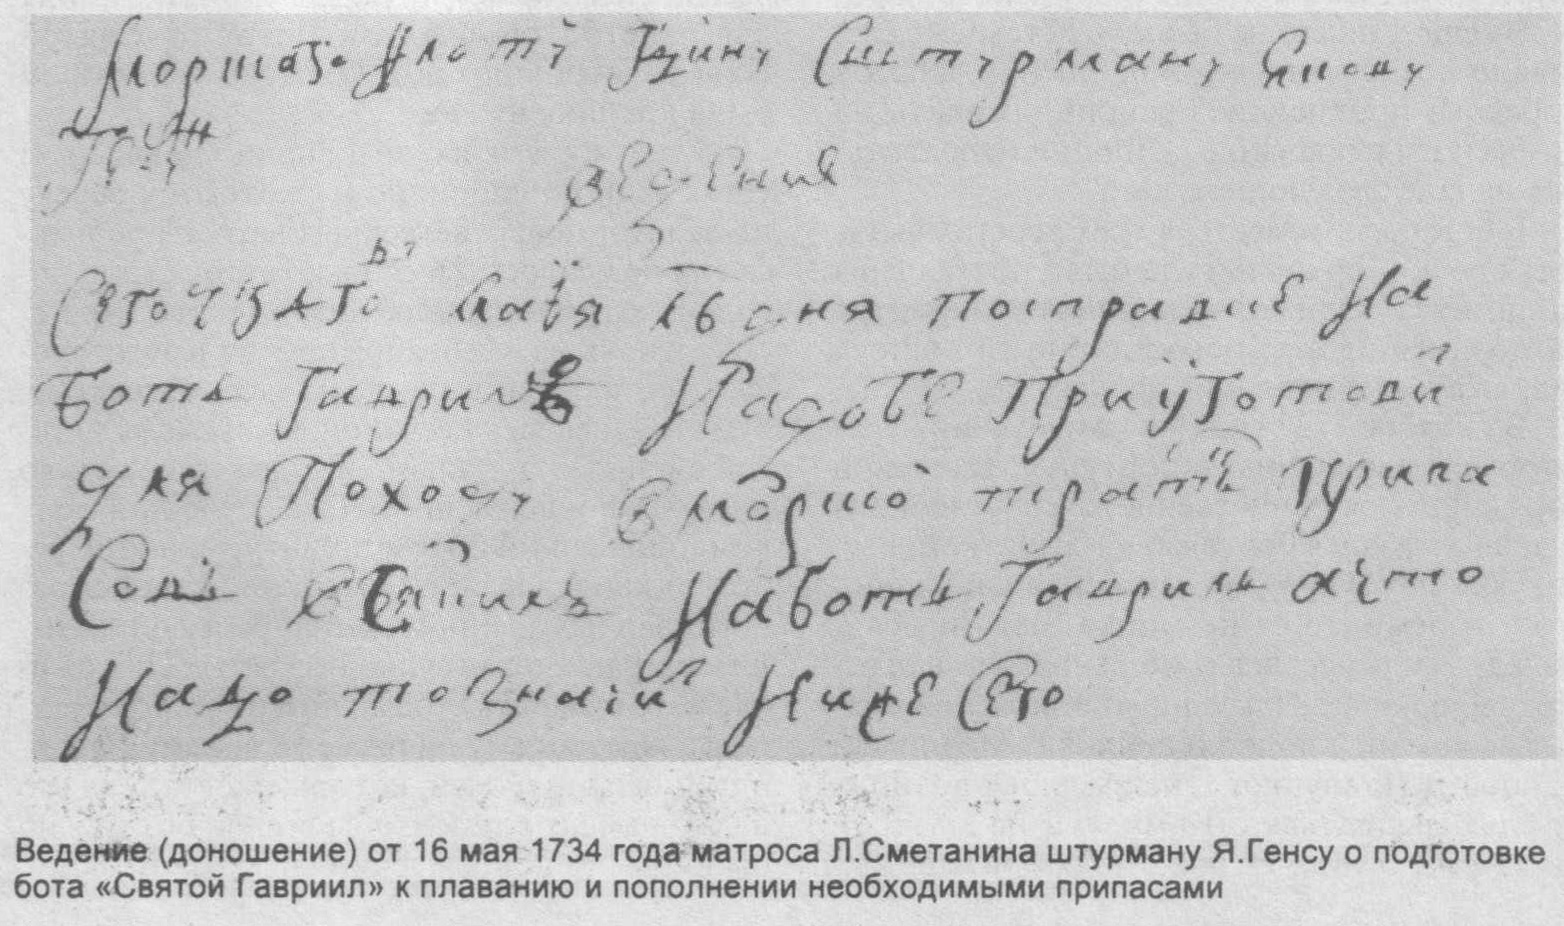 Морскаго флоту гдину Сштурману Якову
Генсу
ведения
Сего 734 го ду маия 16 дня поправлие на
боте Гаврилъ надобе приуготовит
для походу в моршо тратъ припа
совъ на ботъ Гаврилъ а что
надо то значит ниже сего
Ведение (доношение) от 16 мая 1734 года матроса Л.Сметанина штурману Я.Генсу о подготовке
бота «Святой Гавриил» к плаванию и пополнении необходимыми припасами